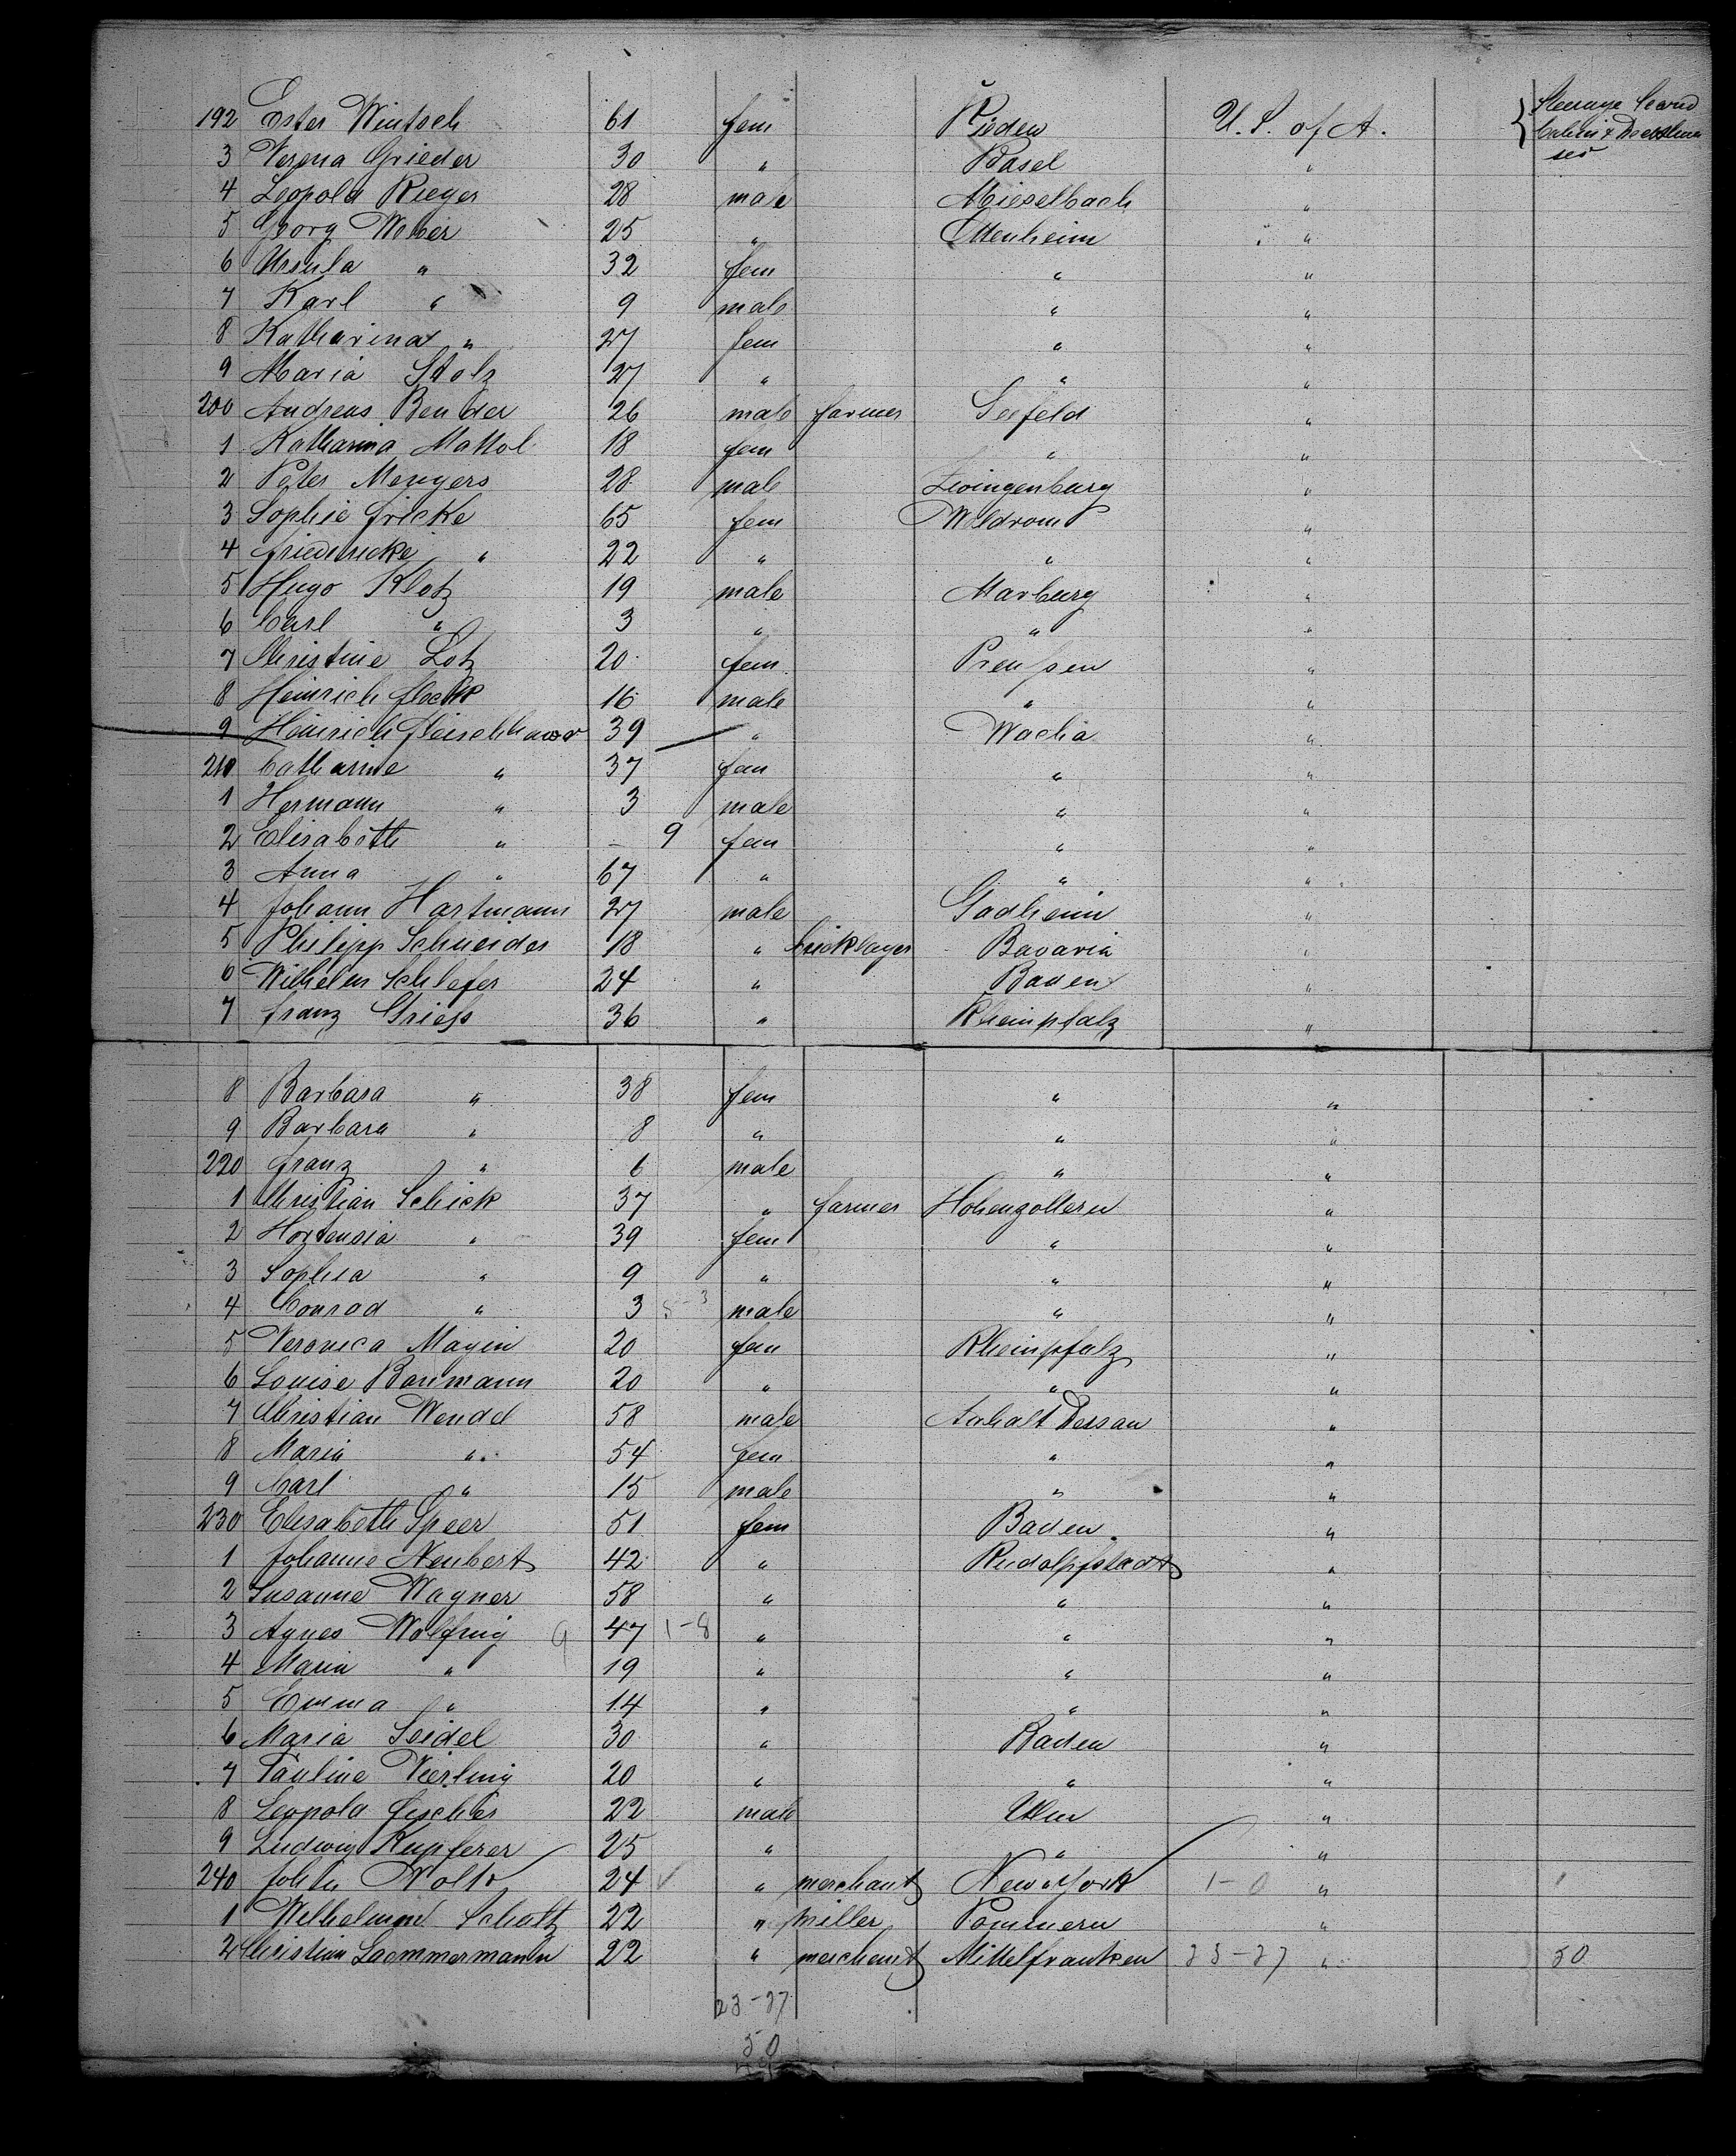 192 Ester Wintsch 61 fem Rieden U. S. of A. { Steerage Second
3 Verena Grieder 30 " Basel " Cabin &
4 Leopold Rieger 28 male Mieselbach "
5 Georg Weber 25 " Ettenheim "
6 Ursula " 32 fem " "
7 Karl " 9 male " "
8 Katharina " 27 fem " "
9 Maria Stolz 27 " " "
200 Andreas Bender 26 male farmer Seefeld "
1 Katharina 18 fem " "
2 Peter Mengers 28 male Zwingenburg "
3 Sophie Fricke 65 fem Weldrom "
4 Friedericke " 22 " " "
5 Hugo Klotz 19 male Marburg "
6 Carl " 3 " " "
7 Christine Lotz 20 fem Preußen "
8 Heinrich Flock 16 male " "
9 Heinrich Fleischhauer 39 " Wacha "
210 Catharine " 37 fem " "
1 Hermann " 3 male " "
2 Elisabeth " - 9 fem " "
3 Anna " 67 " " "
4 Johann Hartmann 27 male Gadheim "
5 Philipp Schneider 18 " bricklayer Bavaria "
6 Wilhelm Schlefer 24 " Baden "
7 Franz Grieß 36 " Rheinpfalz "
8 Barbara " 38 fem " "
9 Barbara " 8 " " "
220 Franz " 6 male " "
1 Christian Schick 37 " farmer Hohenzollern "
2 Hortensia " 39 fem " "
3 Sophia " 9 " " "
4 Conrad " 3 male " "
5 Veronica Magin 20 fem Rheinpfalz "
6 Louise Baumann 20 " " "
7 Christian Wendel 58 male Anhalt Dessau "
8 Maria " 54 fem " "
9 Carl " 15 male " "
230 Elisabeth Speer 51 fem Baden "
1 Johanne Neubert 42 " Rudolpfstadt "
2 Susanne Wagner 58 " " "
3 Agnes Wolfrnig 9 47 1-8 " " "
4 Maria " 19 " " "
5 Emma " 14 " " "
6 Maria Seidel 30 " Baden "
7 Pauline Vierling 20 " " "
8 Leopold Fischer 22 male Ulm "
9 Ludwig Kupferer 25 " " "
240 John Nolte 24 " merchant New York 1-0 "
1 Wilhelmine Scholtz 22 " miller Pommern "
2 Christian Laemmermann 22 " merchant Mittelfranken 23-27 " 50
23-27
50